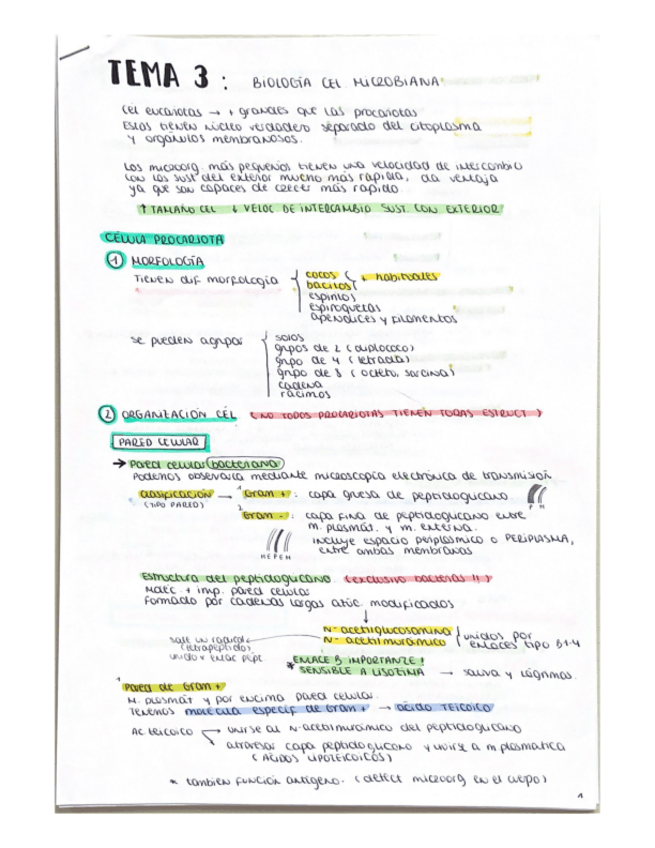 TEMA 3 : BIOLOGÍA CEL MICROBIANA
Cél eucariotas → + grandes que las procariotas
Estas tienen núcleo verdadero separado del citoplasma
y orgánulos membranosos.
Los microorg. más pequeños tienen una velocidad de intercambio
con las sust del exterior mucho más rápida, da ventaja
ya que son capaces de crecer más rápido.
↑ TAMAÑO CEL ↓ VELOC DE INTERCAMBIO SUST. CON EXTERIOR
CÉLULA PROCARIOTA
1 MORFOLOGÍA
Tienen dif morfología
cocos
bacilos
+ habituales
espirilos
espiroquetas
apéndices y filamentos
se pueden agrupar
solos
grupos de 2 (diplococo)
grupo de 4 (tetrada)
grupo de 8 (octeto, sarcina)
cadena
racimos
2 ORGANIZACIÓN CÉL (NO TODOS PROCARIOTAS TIENEN TODAS ESTRUCT)
PARED CELULAR
→ Pared celular bacteriana
Podemos observarla mediante microscopía electrónica de transmisión
clasificación → 1 Gram + : capa gruesa de peptidoglucano
(TIPO PARED)
P M
2 Gram - : capa fina de peptidoglucano entre
m. plasmát. y m. externa.
incluye espacio periplásmico o PERIPLASMA,
entre ambas membranas
Estructura del peptidoglucano (exclusivo bacterias !!)
Matc + imp. pared celular
Formado por cadenas largas azúc. modificados
↓
N- acetilglucosamina
N- acetilmurámico
unidos por
enlaces tipo B1-4
sale un radical
(tetrapéptido)
unido x enlac pépt
* ENLACE B IMPORTANTE !
SENSIBLE A LISOZIMA → saliva y lágrimas.
1 Pared de Gram +
M. plasmát y por encima pared celular.
Tenemos molécula específ de Gram + → ácido TEICOICO
Ac. teicoico
unirse al N-acetilmurámico del peptidoglucano
atravesar capa peptidoglucano y unirse a m plasmática
(ÁCIDOS LIPOTEICOICOS)
* también función antígeno. (detect microorg en el cuerpo)
1